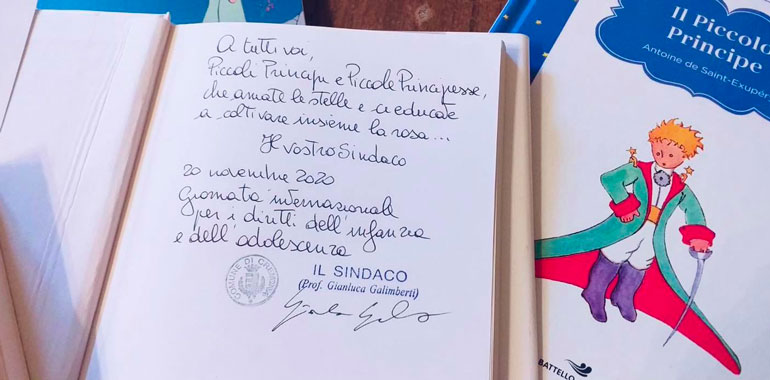 A tutti voi,
Piccoli Principi e Piccole Principesse,
che amate le stelle e ci educate
a coltivare insieme la rosa...
Il vostro Sindaco
20 novembre 2020
Giornata internazionale
per i diritti dell'infanzia
e dell'adolescenza
COMUNE DI CREMONA
IL SINDACO
(Prof. Gianluca Galimberti)
Il Piccolo
Principe
Antoine de Saint-Exupér
BATTELLO